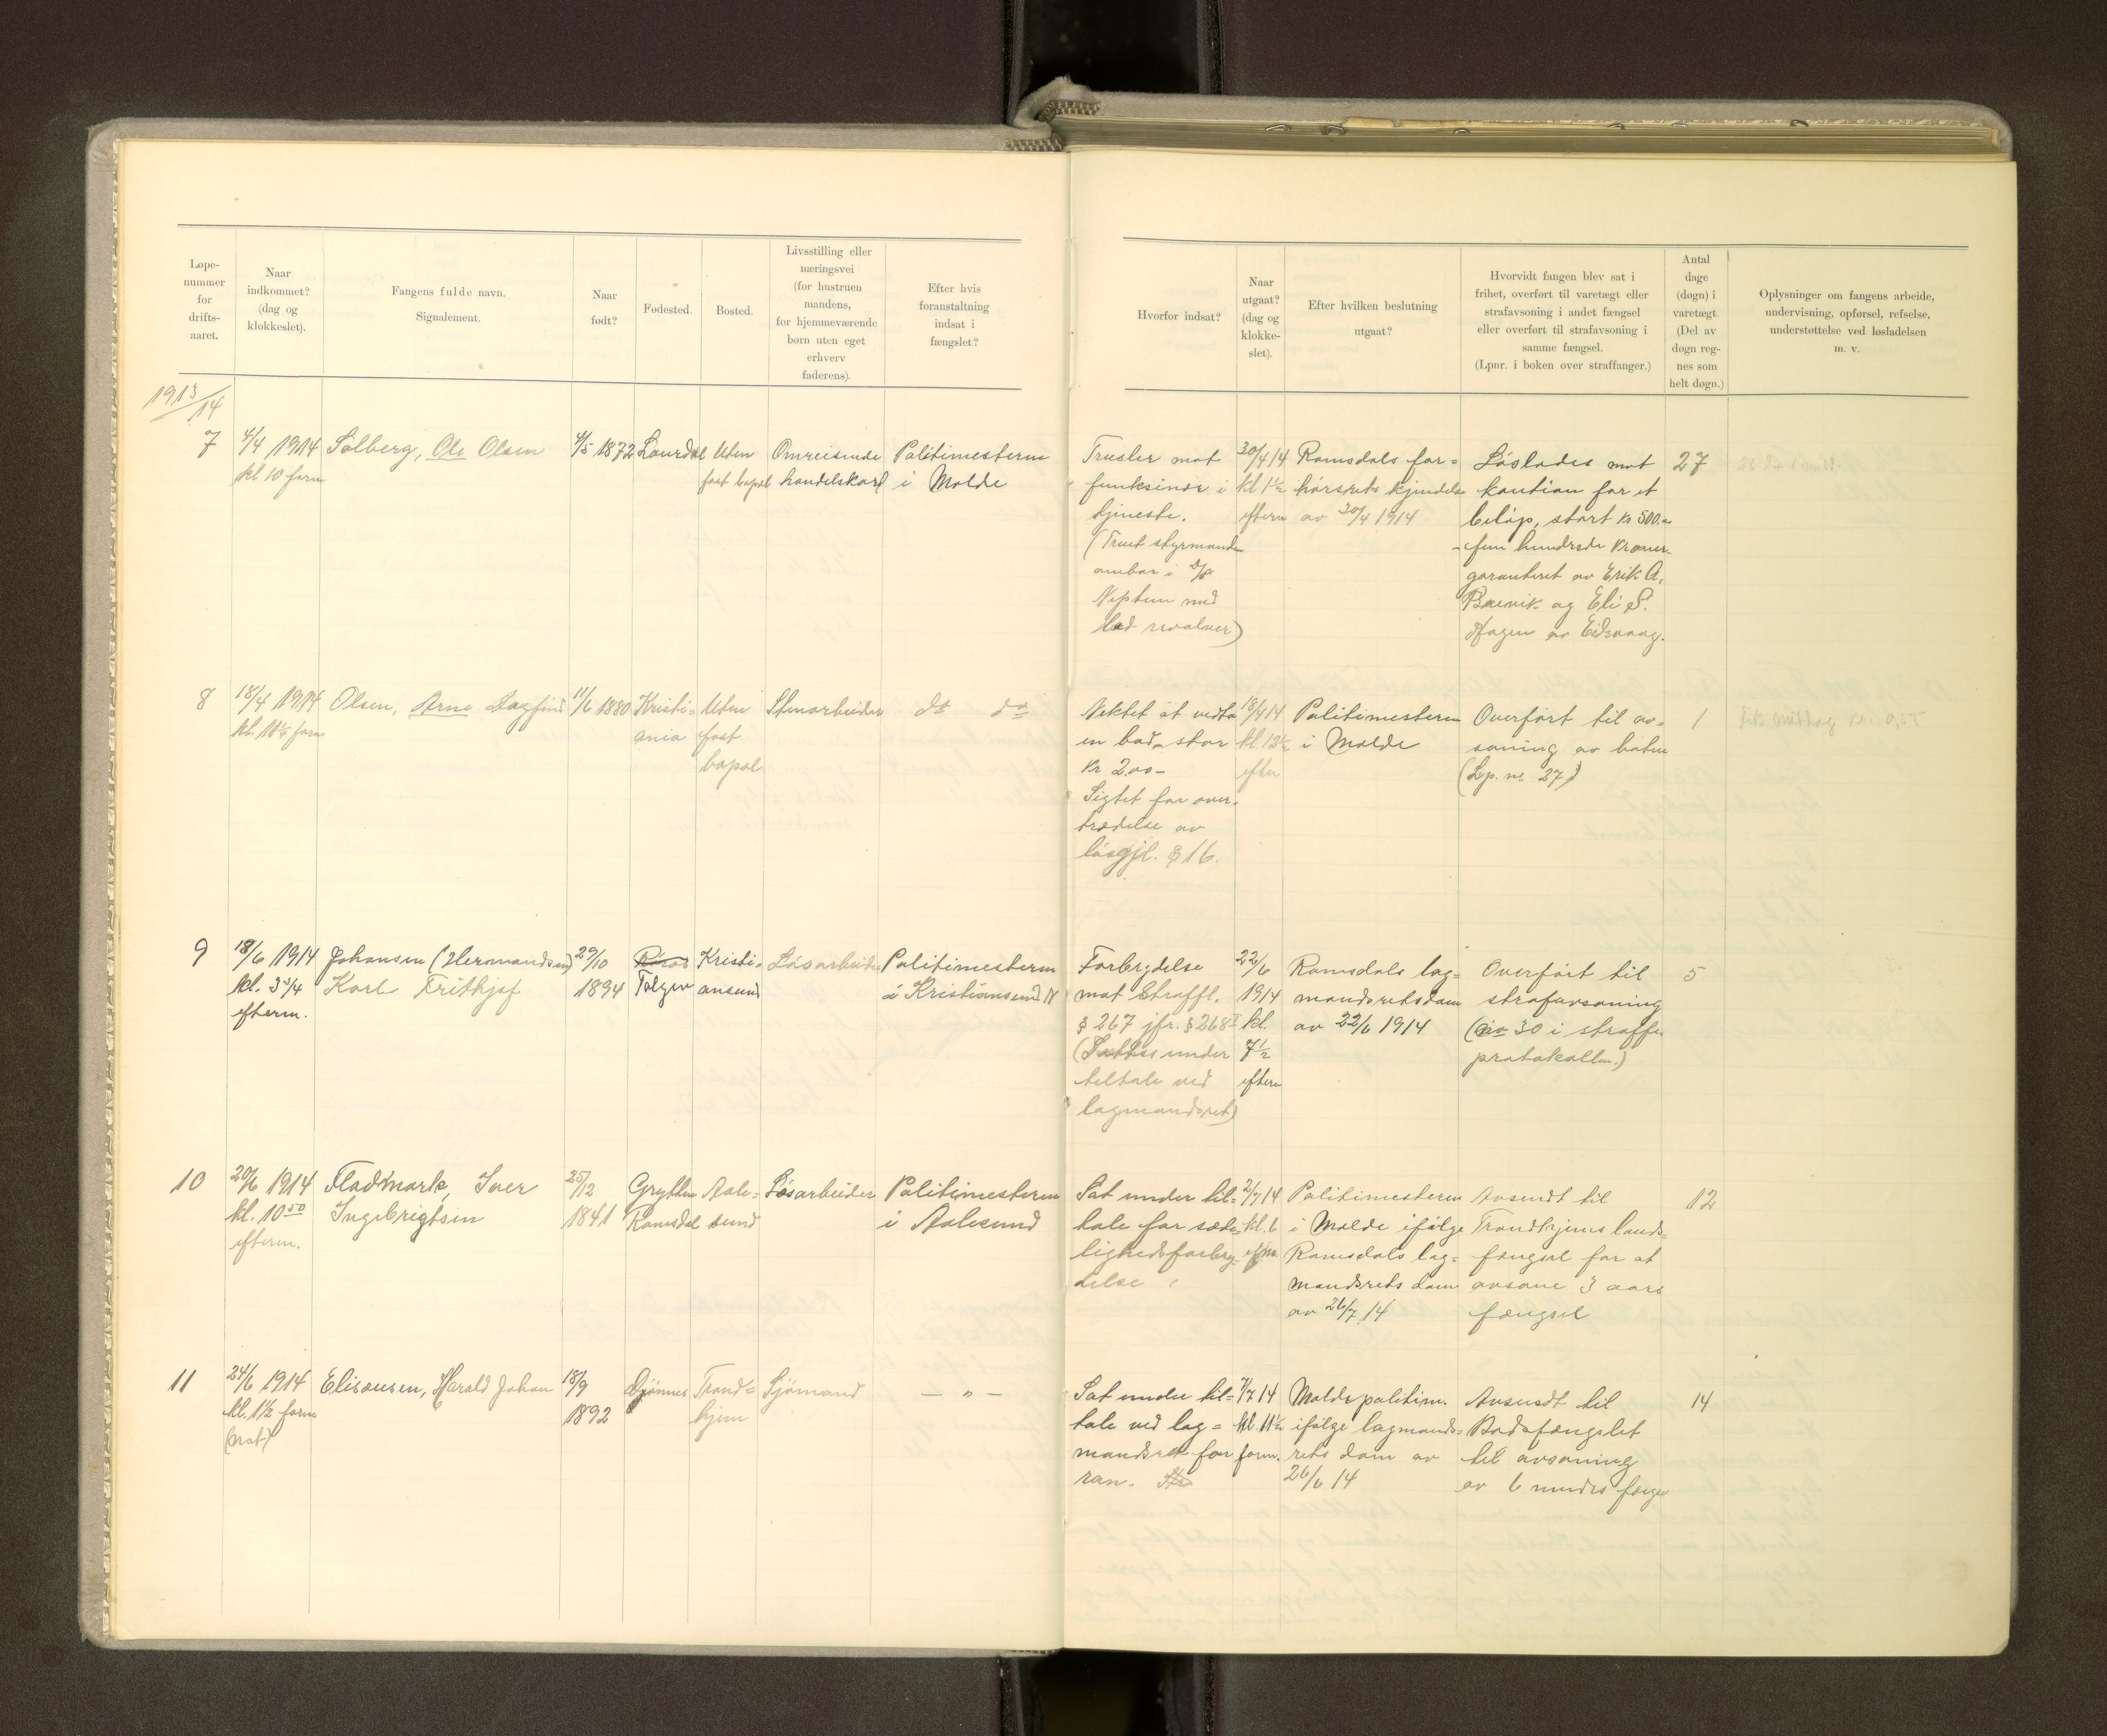 Løpe-
nummer
for
drifts-
aaret.
Naar
indkommet?
(dag og
klokkeslet).
Fangens fulde navn.
Signalement.
Naar
født?
Fødested.
Bosted.
Livsstilling eller
næringsvei
(for hustruen
mandens,
for hjemmeværende
børn uten eget
erhverv
faderens).
Efter hvis
foranstaltning
indsat i
fængslet?
Hvorfor indsat?
Naar
utgaat?
(dag og
klokke-
slet).
Efter hvilken beslutning
utgaat?
Hvorvidt fangen blev sat i
frihet, overført til varetægt eller
strafavsoning i andet fængsel
eller overført til strafavsoning i
samme fængsel.
(Lpnr. i boken over straffanger.)
Antal
dage
(døgn) i
varetægt.
(Del av
døgn reg-
nes som
helt døgn.)
Oplysninger om fangens arbeide,
undervisning, opførsel, refselse,
understøttelse ved løsladelsen
m. v.
1913/14
7
4/4 1914
kl 10 form
Solberg, Ole Olsen
4/5 1872
Laurdal
Uten
fast bopæl
Omreisende
handelskarl
Politimesteren
i Molde
Trusler mot
funksinær i
tjeneste.
(Truet styrmanden
ombor i D/S
Neptun med
lad revolver)
30/4 14
kl 1 1/2
efterm
Romsdals for=
hørsrets kjendelse
av 30/4 1914
Løslades mot
kaution for et
beløp, stort kr 500.-
- fem hundrede kroner-
garanteret av Erik A.
Brevik og Eli S.
Hagen av Eidsvaag.
27
8
18/4 1914
kl. 11 1/2 form
Olsen, Arne Dagfind
11/6 1880
Kristi=
ania
Uten
fast
bopæl
Stenarbeider
do do
Nektet at vedta
en bod, stor
kr 2.00-
Sigtet for over-
trædelse av
løsgjl. § 16.
18/4 14
kl. 12 1/2
efter
Politimesteren
i Molde
Overført til av=
soning av boten
(Lp. nr 27)
1
Fik middag kr. 0,55
9
18/6 1914
kl. 3 3/4
efterm.
Johansen (Hermandsen)
Karl Frithjof
29/10
1894
Røros
Tolgen
Kristi=
ansund
Løsarbeider
Politimesteren
i Kristiansund N
Forbrydelse
mot Straffl.
§ 267 jfr. § 268 I
(Sættes under
tiltale ved
lagmandsret)
22/6
1914
kl.
7 1/2
efterm
Romsdals lag=
mandsretsdom
av 22/6 1914
Overført til
strafavsoning
(nr 30 i straffe
protokollen.)
5
10
20/6 1914
kl. 10 50
efterm.
Fladmark, Iver
Ingebrigtsen
25/12
1841
Grytten
Romsdal
Aale=
sund
Løsarbeider
Politimesteren
i Aalesund
Sat under til=
tale for sæde-
lighedsforbry=
delse
2/7 14
kl. 6
efm.
Politimesteren
i Molde ifølge
Romsdals lag=
mandsrets dom
av 26/7 14
Avsendt til
Trondhjems lands=
fængsel for at
avsone 3 aars
fængsel
12
11
24/6 1914
kl. 1 1/2 form
(nat)
Eliseusen, Harald Johan
18/9
1892
Djønnes
Trond=
hjem
Sjømand
— " —
Sat under til=
tale ved lag=
mandsret for
ran.
7/7 14
kl. 11 1/2
form.
Molde politim.
ifølge lagmands=
rets dom av
26/6 14
Avsendt til
Bodsfængslet
til avsoning
av 6 mndrs fænge
14